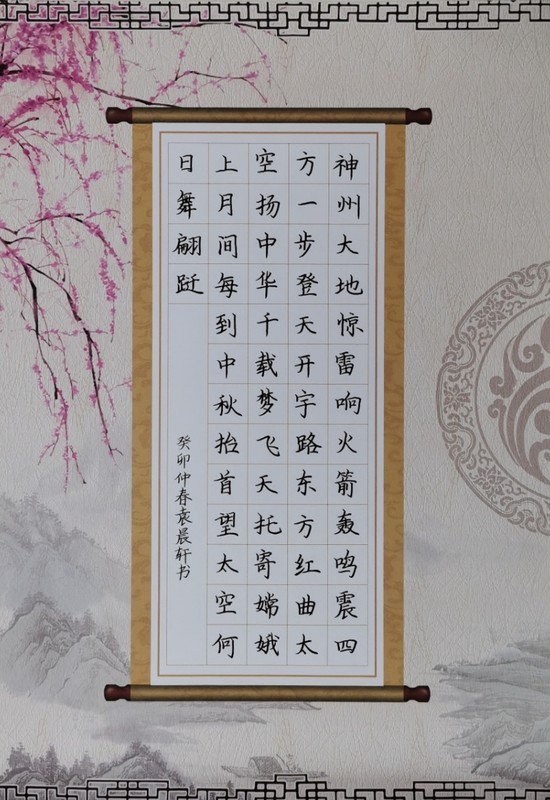 神州大地惊雷响火箭轰鸣震四
方一步登天开宇路东方红曲太
空扬中华千载梦飞天托寄嫦娥
上月间每到中秋抬首望太空何
日舞翩跹
癸卯仲春袁晨轩书